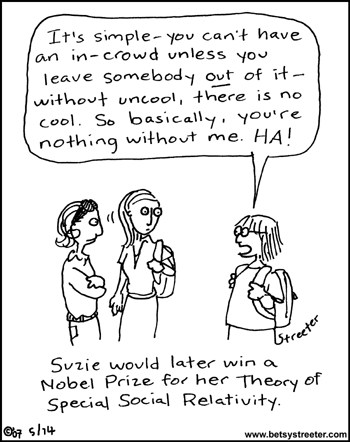 It's simple-you can't have
an in-crowd unless you
leave somebody out of it-
without uncool, there is no
cool. So basically, you're
nothing without me. HA!
Streeter
Suzie would later win a
Nobel Prize for her Theory of
Special Social Relativity.
©07 5/14
www.betsystreeter.com